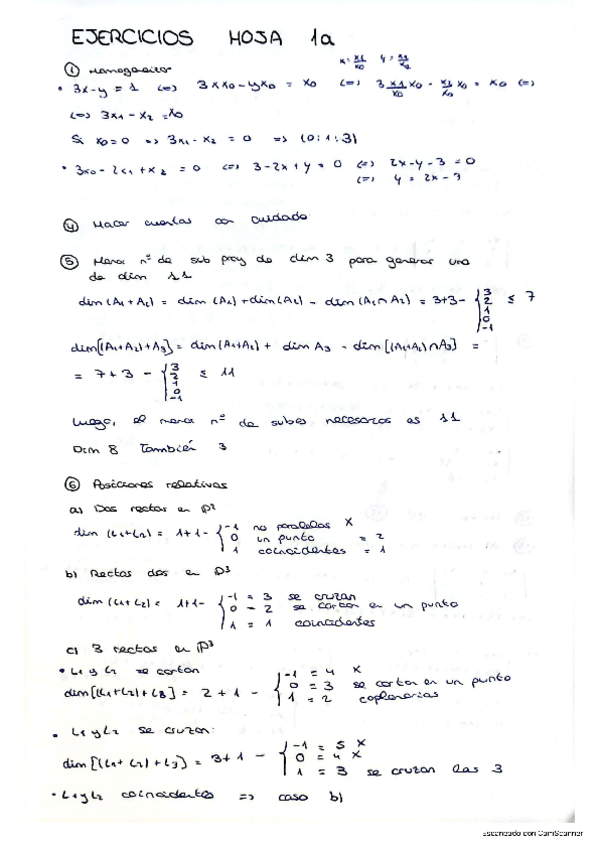 EJERCICIOS HOJA 1a
① Homogeneizar x = x1/x0 y = x2/x0
• 3x-y = 1 (=) 3xx0-yx0 = x0 (=) 3 x1/x0 x0 - x2/x0 x0 = x0 (=)
(=) 3x1-x2 = x0
Si x0=0 => 3x1-x2 = 0 => (0:1:3)
• 3x0-2x1+x2 = 0 (=) 3-2x+y = 0 (=) 2x-y-3 = 0
(=) y = 2x-3
④ Hacer cuentas con cuidado
⑤ Menor nº de sub proy de dim 3 para generar uno
de dim 11
dim(A1+A2) = dim(A1)+dim(A2) - dim(A1∩A2) = 3+3- { 3 2 1 0 -1 ≤ 7
dim[(A1+A2)+A3] = dim(A1+A2) + dim A3 - dim[(A1+A2)∩A3] =
= 7+3 - { 3 2 1 0 -1 ≤ 11
Luego, el menor nº de subes necesarios es 11
Dim 8 También 3
⑥ Posiciones relativas
a) Dos rectas en P²
dim(L1+L2) = 1+1- { -1 no paralelas X
0 un punto = 2
1 coincidentes = 1
b) Rectas dos en P³
dim(L1+L2) = 1+1- { -1 = 3 se cruzan
0 = 2 se cortan en un punto
1 = 1 coincidentes
c) 3 rectas en P³
• L1 y L2 se cortan
dim[(L1+L2)+L3] = 2+1 - { -1 = 4 X
0 = 3 se cortan en un punto
1 = 2 coplanarias
• L1 y L2 se cruzan:
dim[(L1+L2)+L3] = 3+1 - { -1 = 5 X
0 = 4 X
1 = 3 se cruzan las 3
• L1 y L2 coincidentes => caso b)
Escaneado con CamScanner